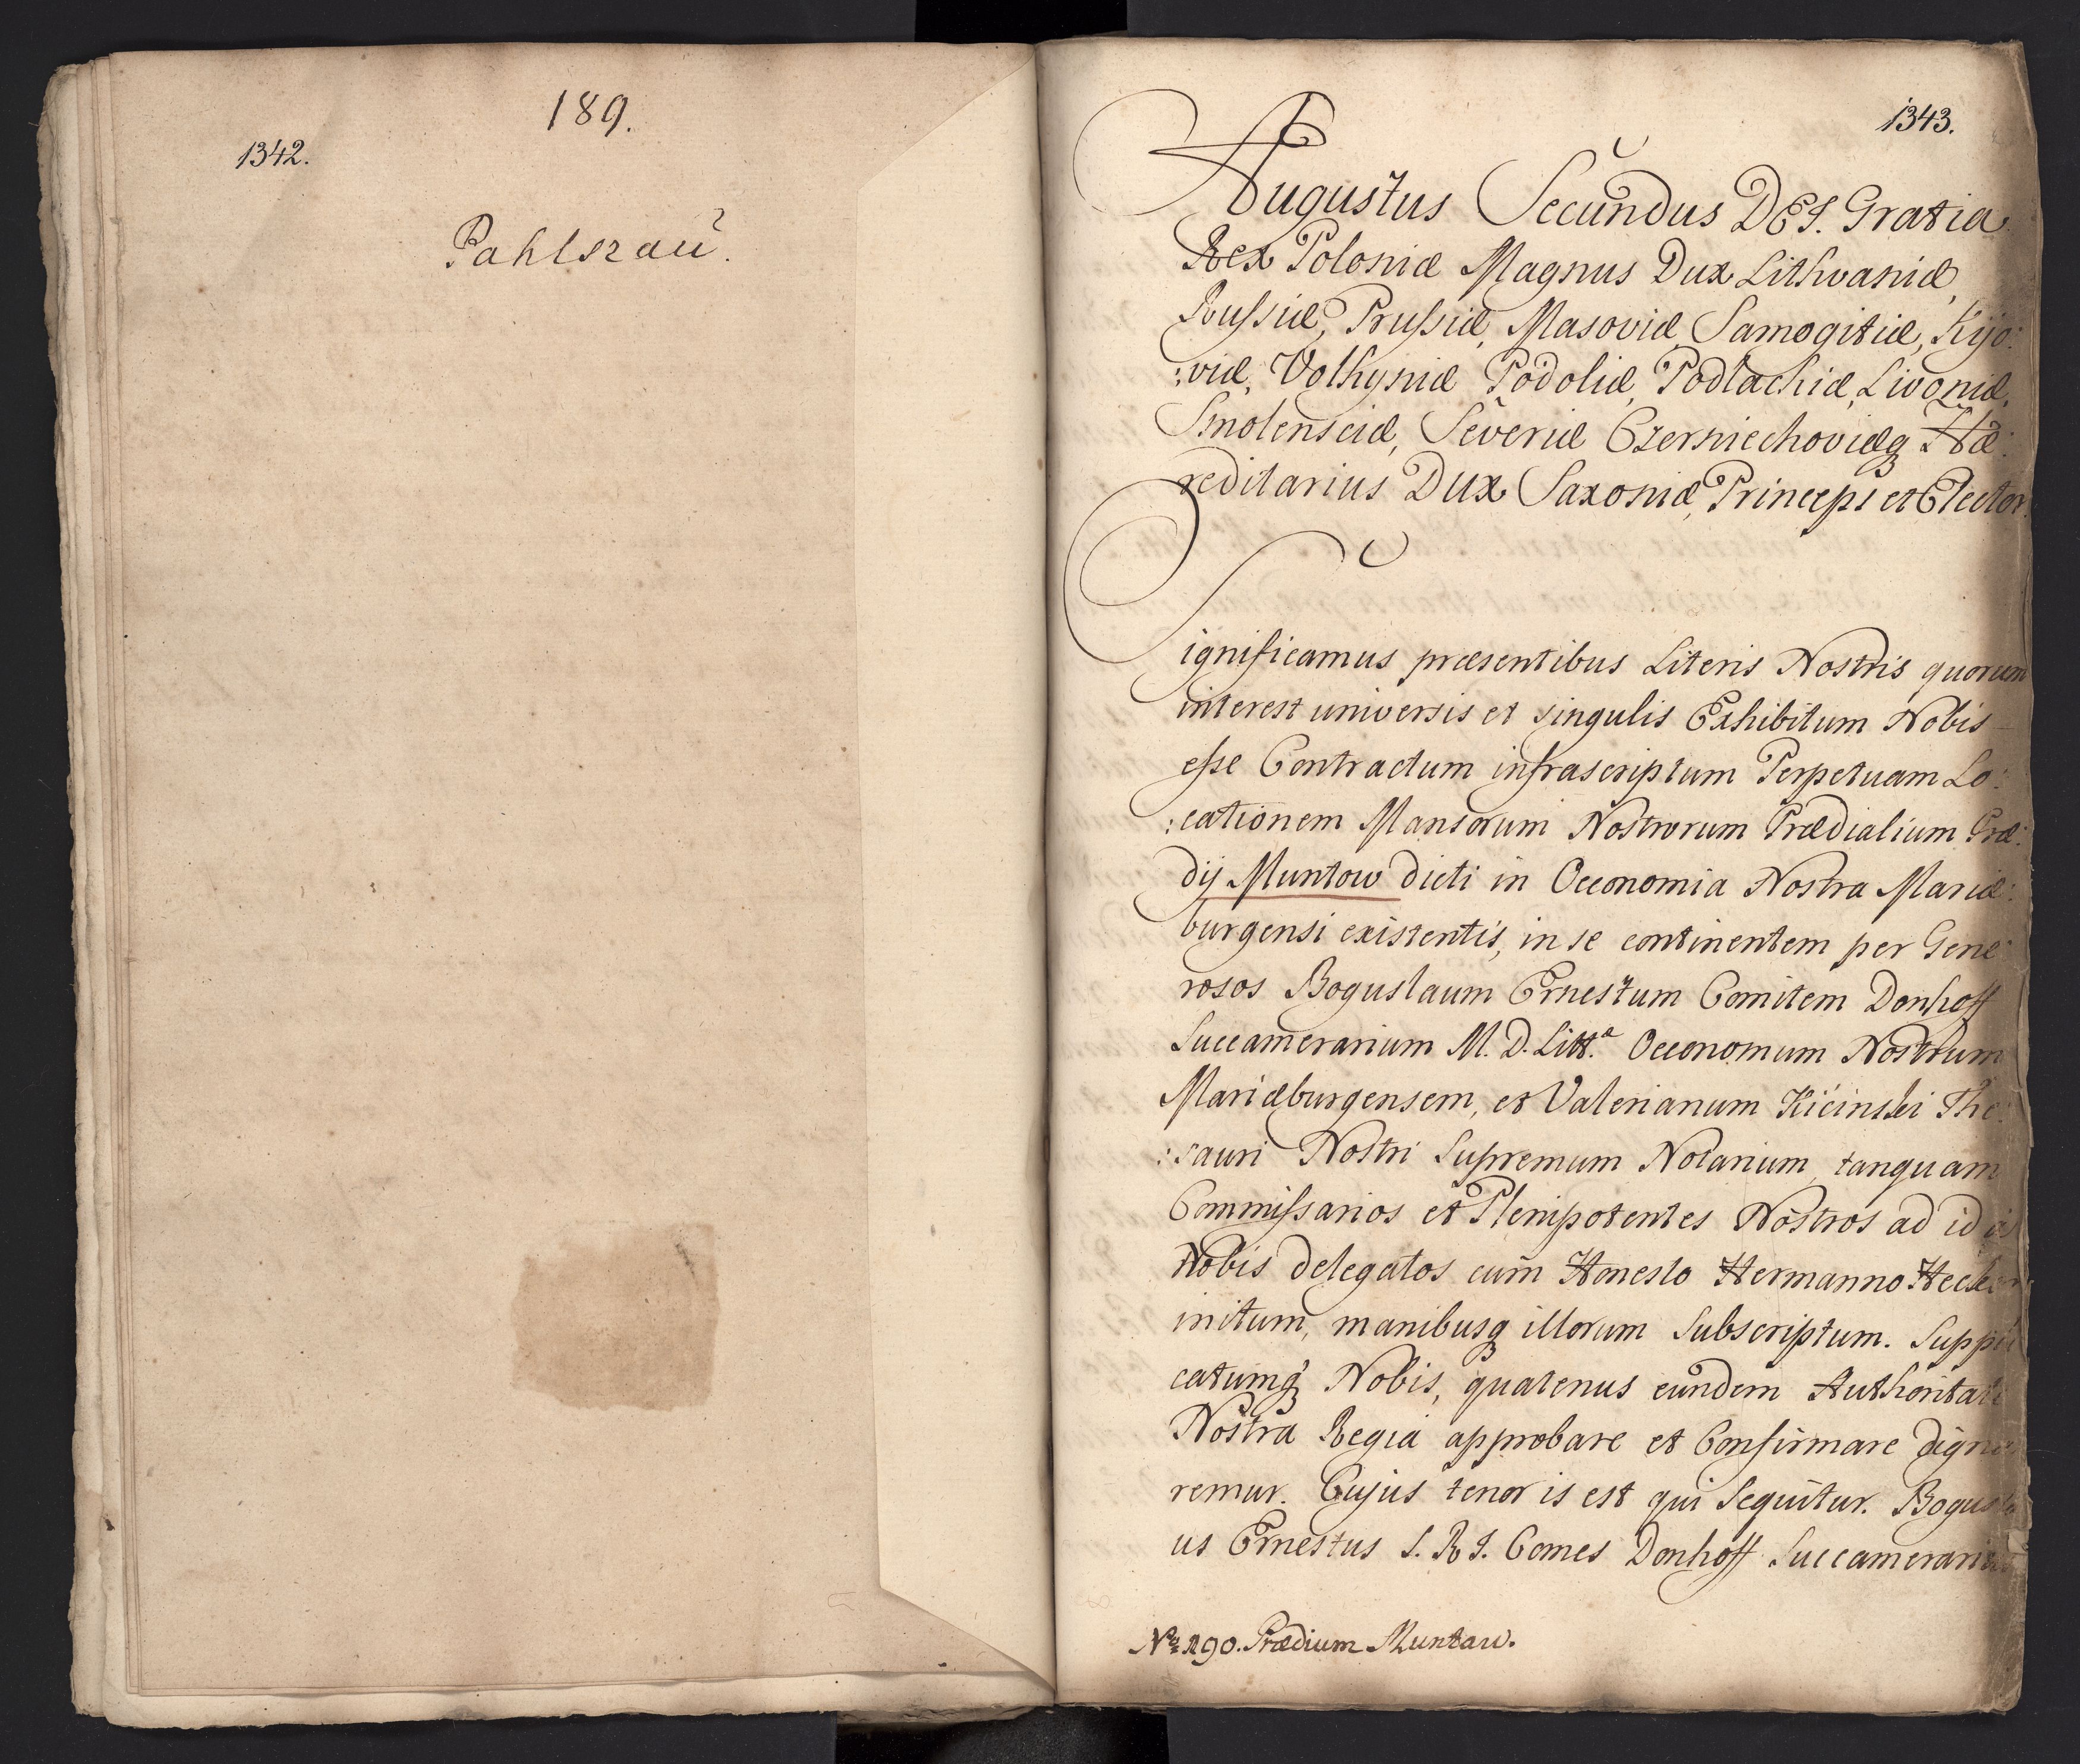 189.
1342.
Pahlszau.
1343.
Augustus Secundus DEI. Gratia
Rex Poloniæ Magnus Dux Lithvaniæ,
Russiæ, Prussiæ, Masoviæ, Samogitiæ, Kijo:
:viæ, Volhyniæ Podoliæ, Podlachiæ, Livoniæ,
Smolensciæ, Severiæ Czerniechoviæq Hæ:
reditarius Dux Saxoniæ, Princeps et Elector.
Significamus præsentibus Literis Nostris quorum
interest universis et singulis Exhibitum Nobis
esse Contractum infrascriptum Perpetuam Lo:
:cationem Mansorum Nostrorum Prædialium Præ:
dij Muntow dicti in Oeconomia Nostra Mariæ:
burgensi existentis, in se continentem per Gene:
rosos Boguslaum Ernestum Comitem Donhoff
Succamerarium M. D. Litt.ª Oeconomum Nostrum
Mariæburgensem, et Valerianum Kicinski The:
:sauri Nostri Supremum Notarium, tanquam
Commissarios et Plenipotentes Nostros ad id a
Nobis delegatos cum Honesto Hermanno
initum, manibusq illorum Subscriptum. Suppli
catumq Nobis, quatenus eundem Authoritate
Nostra Regia approbare et Confirmare digna
remur. Cujus tenor is est qui Sequitur. Bogusla
us Ernestus S. R. I. Comes Donhoff Succamerarius
No 190. Prædium Muntau.